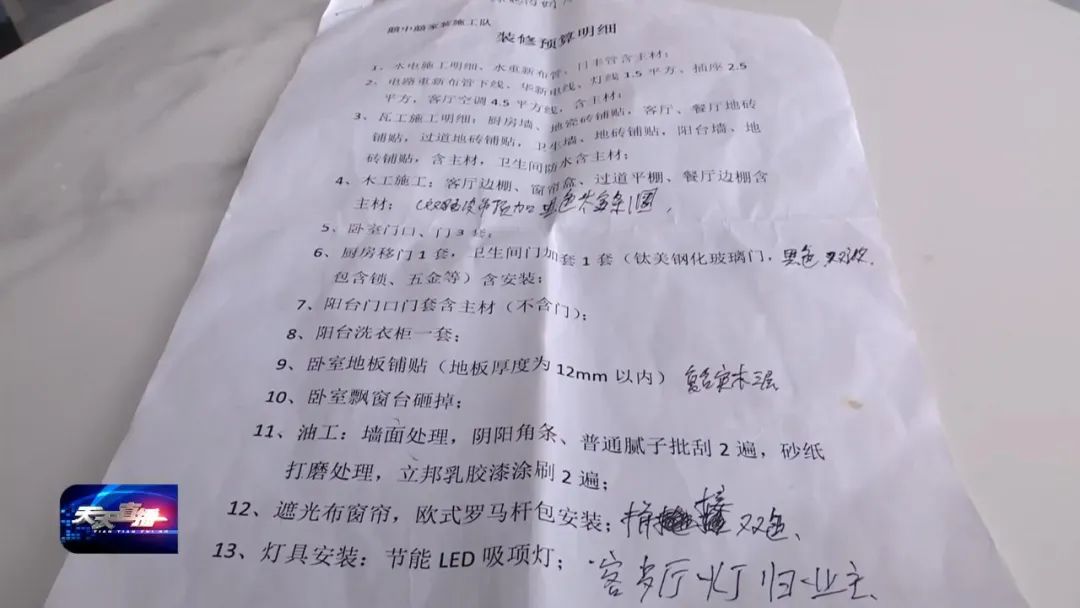 装修预算明细
1、水电施工明细、水重新布管、日丰管含主材；
2、电路重新布管下线、华新电线、灯线1.5平方、插座2.5
平方，客厅空调4.5平方线，含主材；
3、瓦工施工明细：厨房墙、地瓷砖铺贴，客厅、餐厅地砖
铺贴，过道地砖铺贴，卫生墙、地砖铺贴，阳台墙、地
砖铺贴，含主材，卫生间防水含主材；
4、木工施工：客厅边棚、窗帘盒、过道平棚、餐厅边棚含
主材；
5、卧室门口、门3套；
6、厨房移门1套，卫生间门加套1套（钛美钢化玻璃门，黑色双
包含锁、五金等）含安装；
7、阳台门口门套含主材（不含门）；
8、阳台洗衣柜一套；
9、卧室地板铺贴（地板厚度为12mm以内）复合实木三层
10、卧室飘窗台砸掉；
11、油工：墙面处理，阴阳角条、普通腻子批刮2遍，砂纸
打磨处理，立邦乳胶漆涂刷2遍；
12、遮光布窗帘，欧式罗马杆包安装；双色、
13、灯具安装：节能LED吸项灯；客餐厅灯归业主、
天天直播
TIAN TIAN ZHI BO